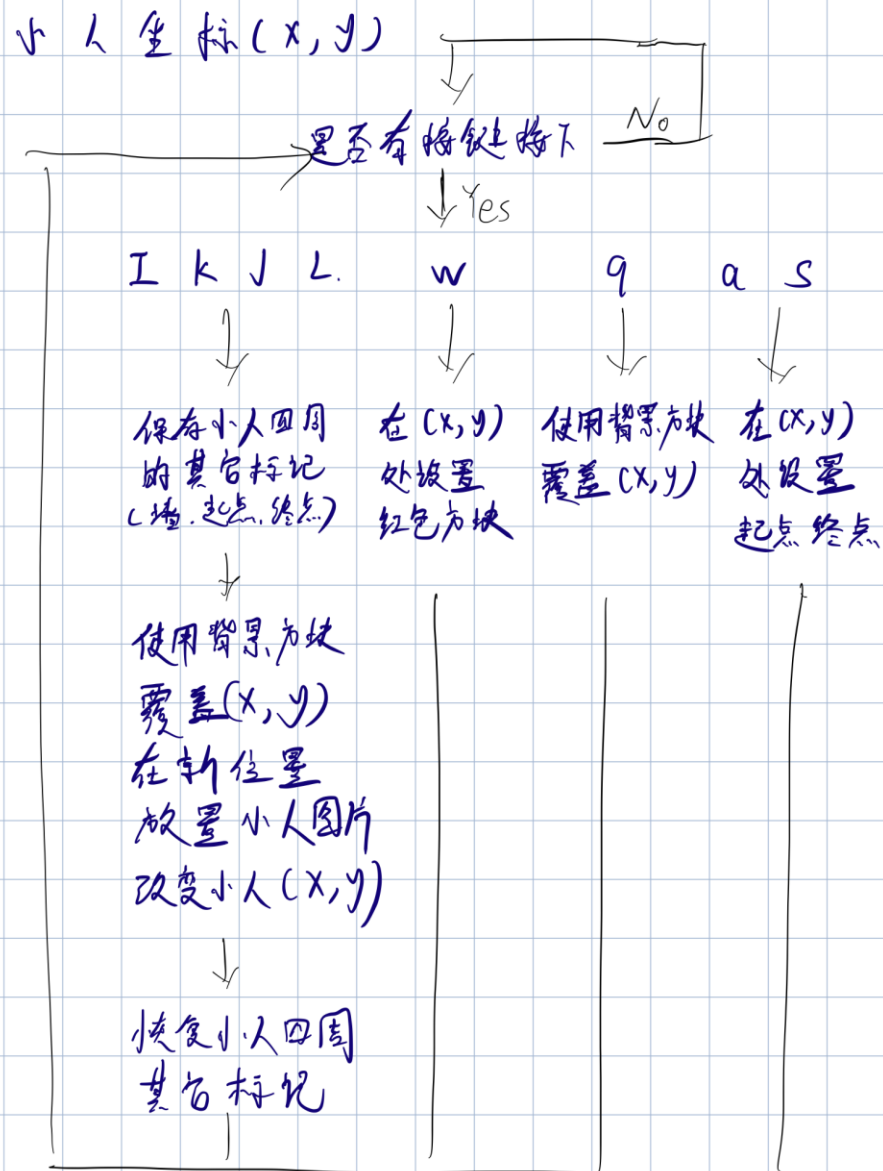 小人坐标(x,y)
是否有按键按下
No
Yes
I K J L.
w
q
a s
保存小人四周
的其它标记
(墙.起点.终点)
使用背景方块
覆盖(x,y)
在新位置
放置小人图片
改变小人(x,y)
恢复小人四周
其它标记
在(x,y)
处设置
红色方块
使用背景方块
覆盖(x,y)
在(x,y)
处设置
起点终点